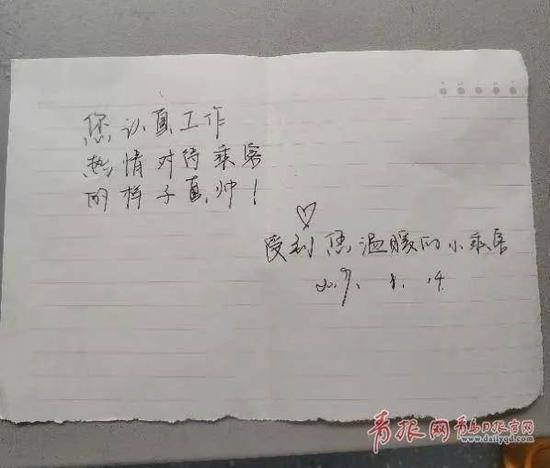 您认真工作
热情对待乘客
的样子真帅！
♡
受到您温暖的小乘客
2019.1.14
青报网 青岛日报官网
www.dailyqd.com